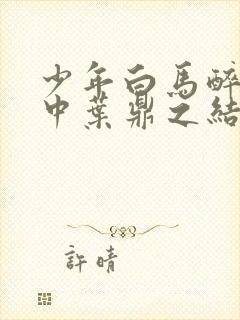 少年白馬醉
中葉鼎之結
許晴